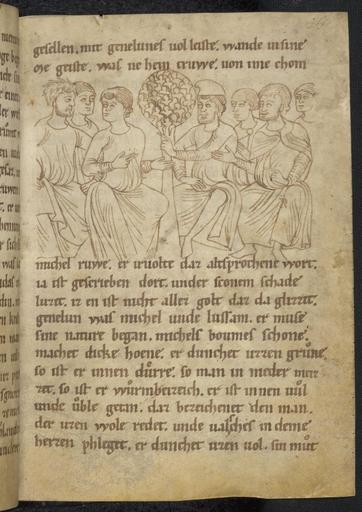 gesellen. mit genelunes uolleiste. wande in sine
me geiste. was ne hein truwe. uon ime chom
michel ruwe. er iruolte daz altsprochene wort.
ia ist gescriben dort. under sconem schade
luzet. iz en ist nicht allez golt daz da glizzet.
genelun was michel unde lussam. er muse
sine nature began. michels boumes schone.
machet dicke hoene. er dunchet uzzen grune.
so ist er innen durre. so man in nieder
zet. so ist er wurmbeizech. er ist innen uul
unde uble getan. daz bezeichenet den man.
der uzen wole redet. unde ualsches in deme
herzen phleget. er dunchet uzen uol. sin müt